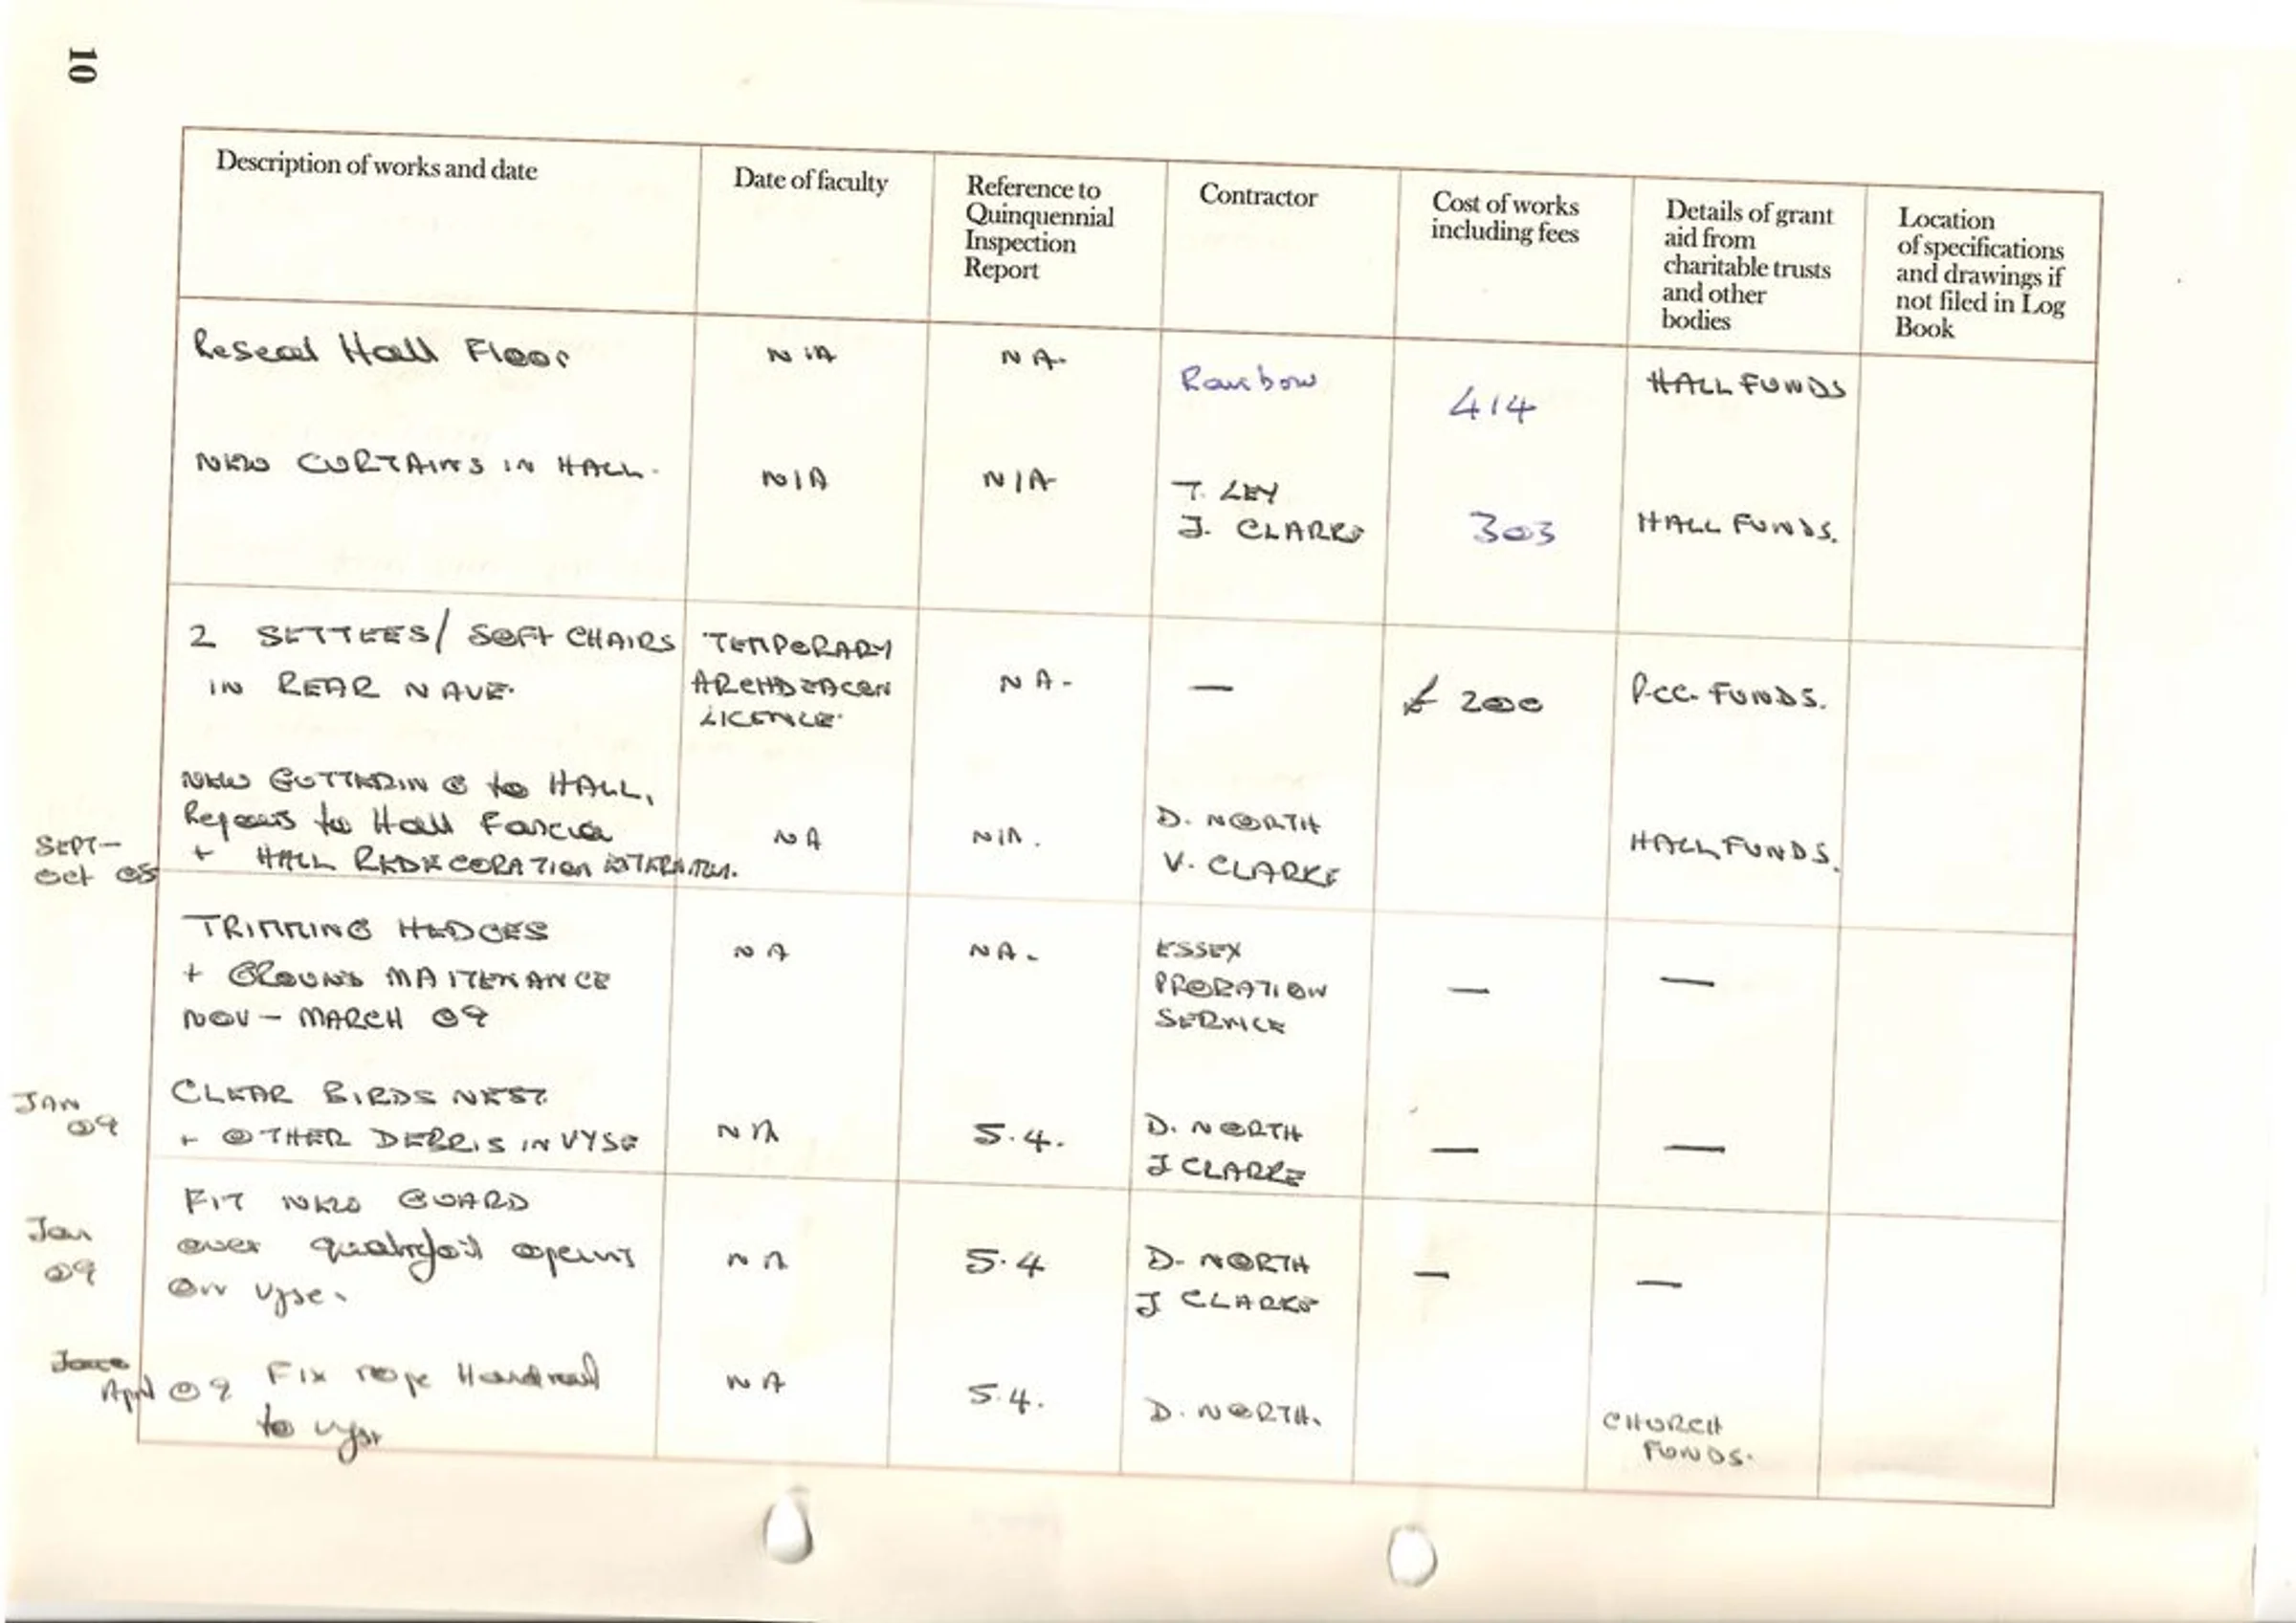 10
Description of works and date
Date of faculty
Reference to
Quinquennial
Inspection
Report
Contractor
Cost of works
including fees
Details of grant
aid from
charitable trusts
and other
bodies
Location
of specifications
and drawings if
not filed in Log
Book
Reseal Hall Floor
N/A
NA-
Rainbow
414
HALL FUNDS
NEW CURTAINS IN HALL.
N/A
N/A
T. LEY
J. CLARKE
303
HALL FUNDS.
2 SETTEES/ SOFT CHAIRS
IN REAR NAVE.
TEMPORARY
ARCHDEACON
LICENCE.
NA-
—
£ 200
P.CC. FUNDS.
SEPT-
Oct 08
NEW GUTTERING to HALL,
Repairs to Hall Fascia
+ HALL REDECORATION
NA
N/A.
D. NORTH
V. CLARKE
HALL FUNDS.
TRIMMING HEDGES
+ GROUND MAITENANCE
NOV - MARCH 09
NA
NA.
ESSEX
PROBATION
SERVICE
—
—
JAN
09
CLEAR BIRDS NEST
+ OTHER DEBRIS IN VYSE
NA
5.4.
D. NORTH
J CLARKE
—
—
Jan
09
FIT NEW GUARD
over quatrefoil openins
on vyse.
NA
5.4
D. NORTH
J CLARKE
—
—
April 09 Fix rope Handrail
to vyse
NA
5.4.
D. NORTH.
CHURCH
FUNDS.